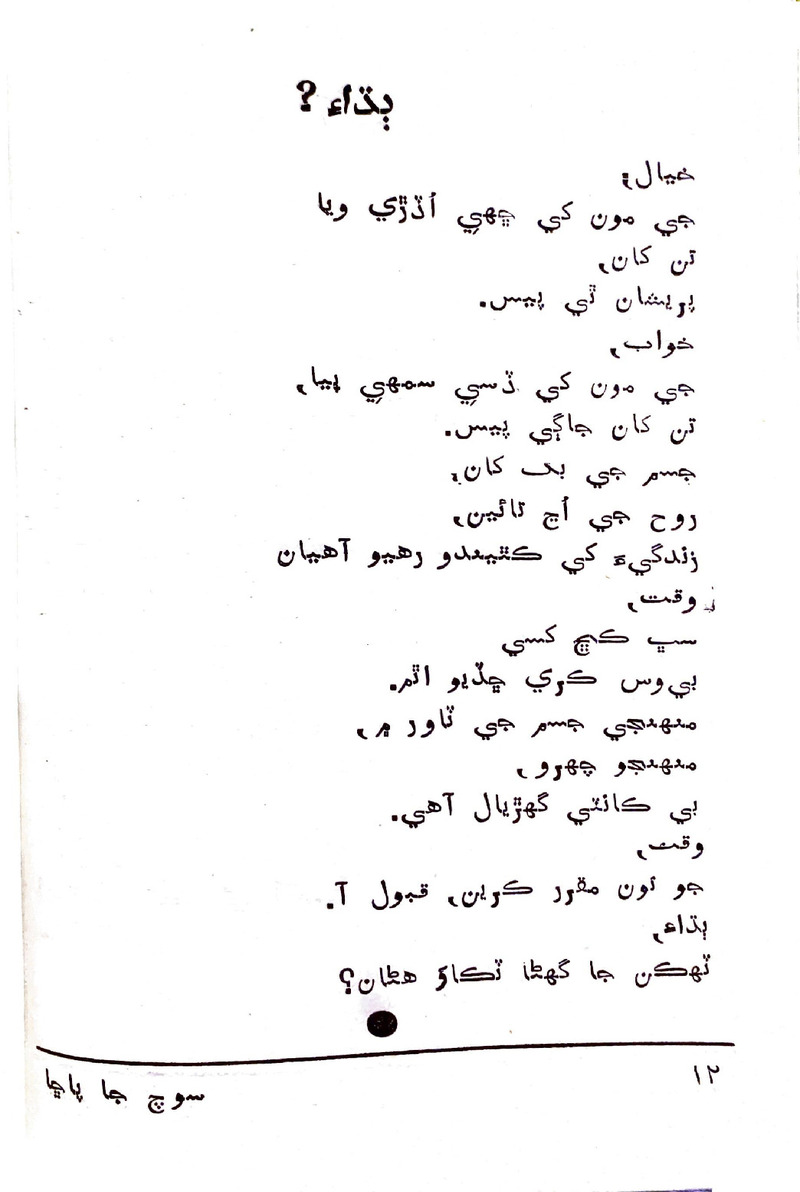 ٻڌاءِ ?
خيال،
جي مون کي ڇهي اُڏڙي ويا
تن کان،
پريشان ٿي پيس.
خواب،
جي مون کي ڏسي سمهي پيا،
تن کان جاڳي پيس.
جسم جي بک کان،
روح جي اُڃ تائين،
زندگيءَ کي ڪٿيندو رهيو آهيان
وقت،
سڀ ڪڇ کسي
بي‌وس ڪري ڇڏيو اٿم.
منهنجي جسم جي ٽاور ۾،
منهنجو چهرو،
بي ڪانٽي گهڙيال آهي.
وقت،
جو تون مقرر ڪرين، قبول آ.
ٻڌاءِ،
ٽهڪن جا گهڻا ٽڪاؤ هڻان؟
١٢
سوچ جا پاڇا